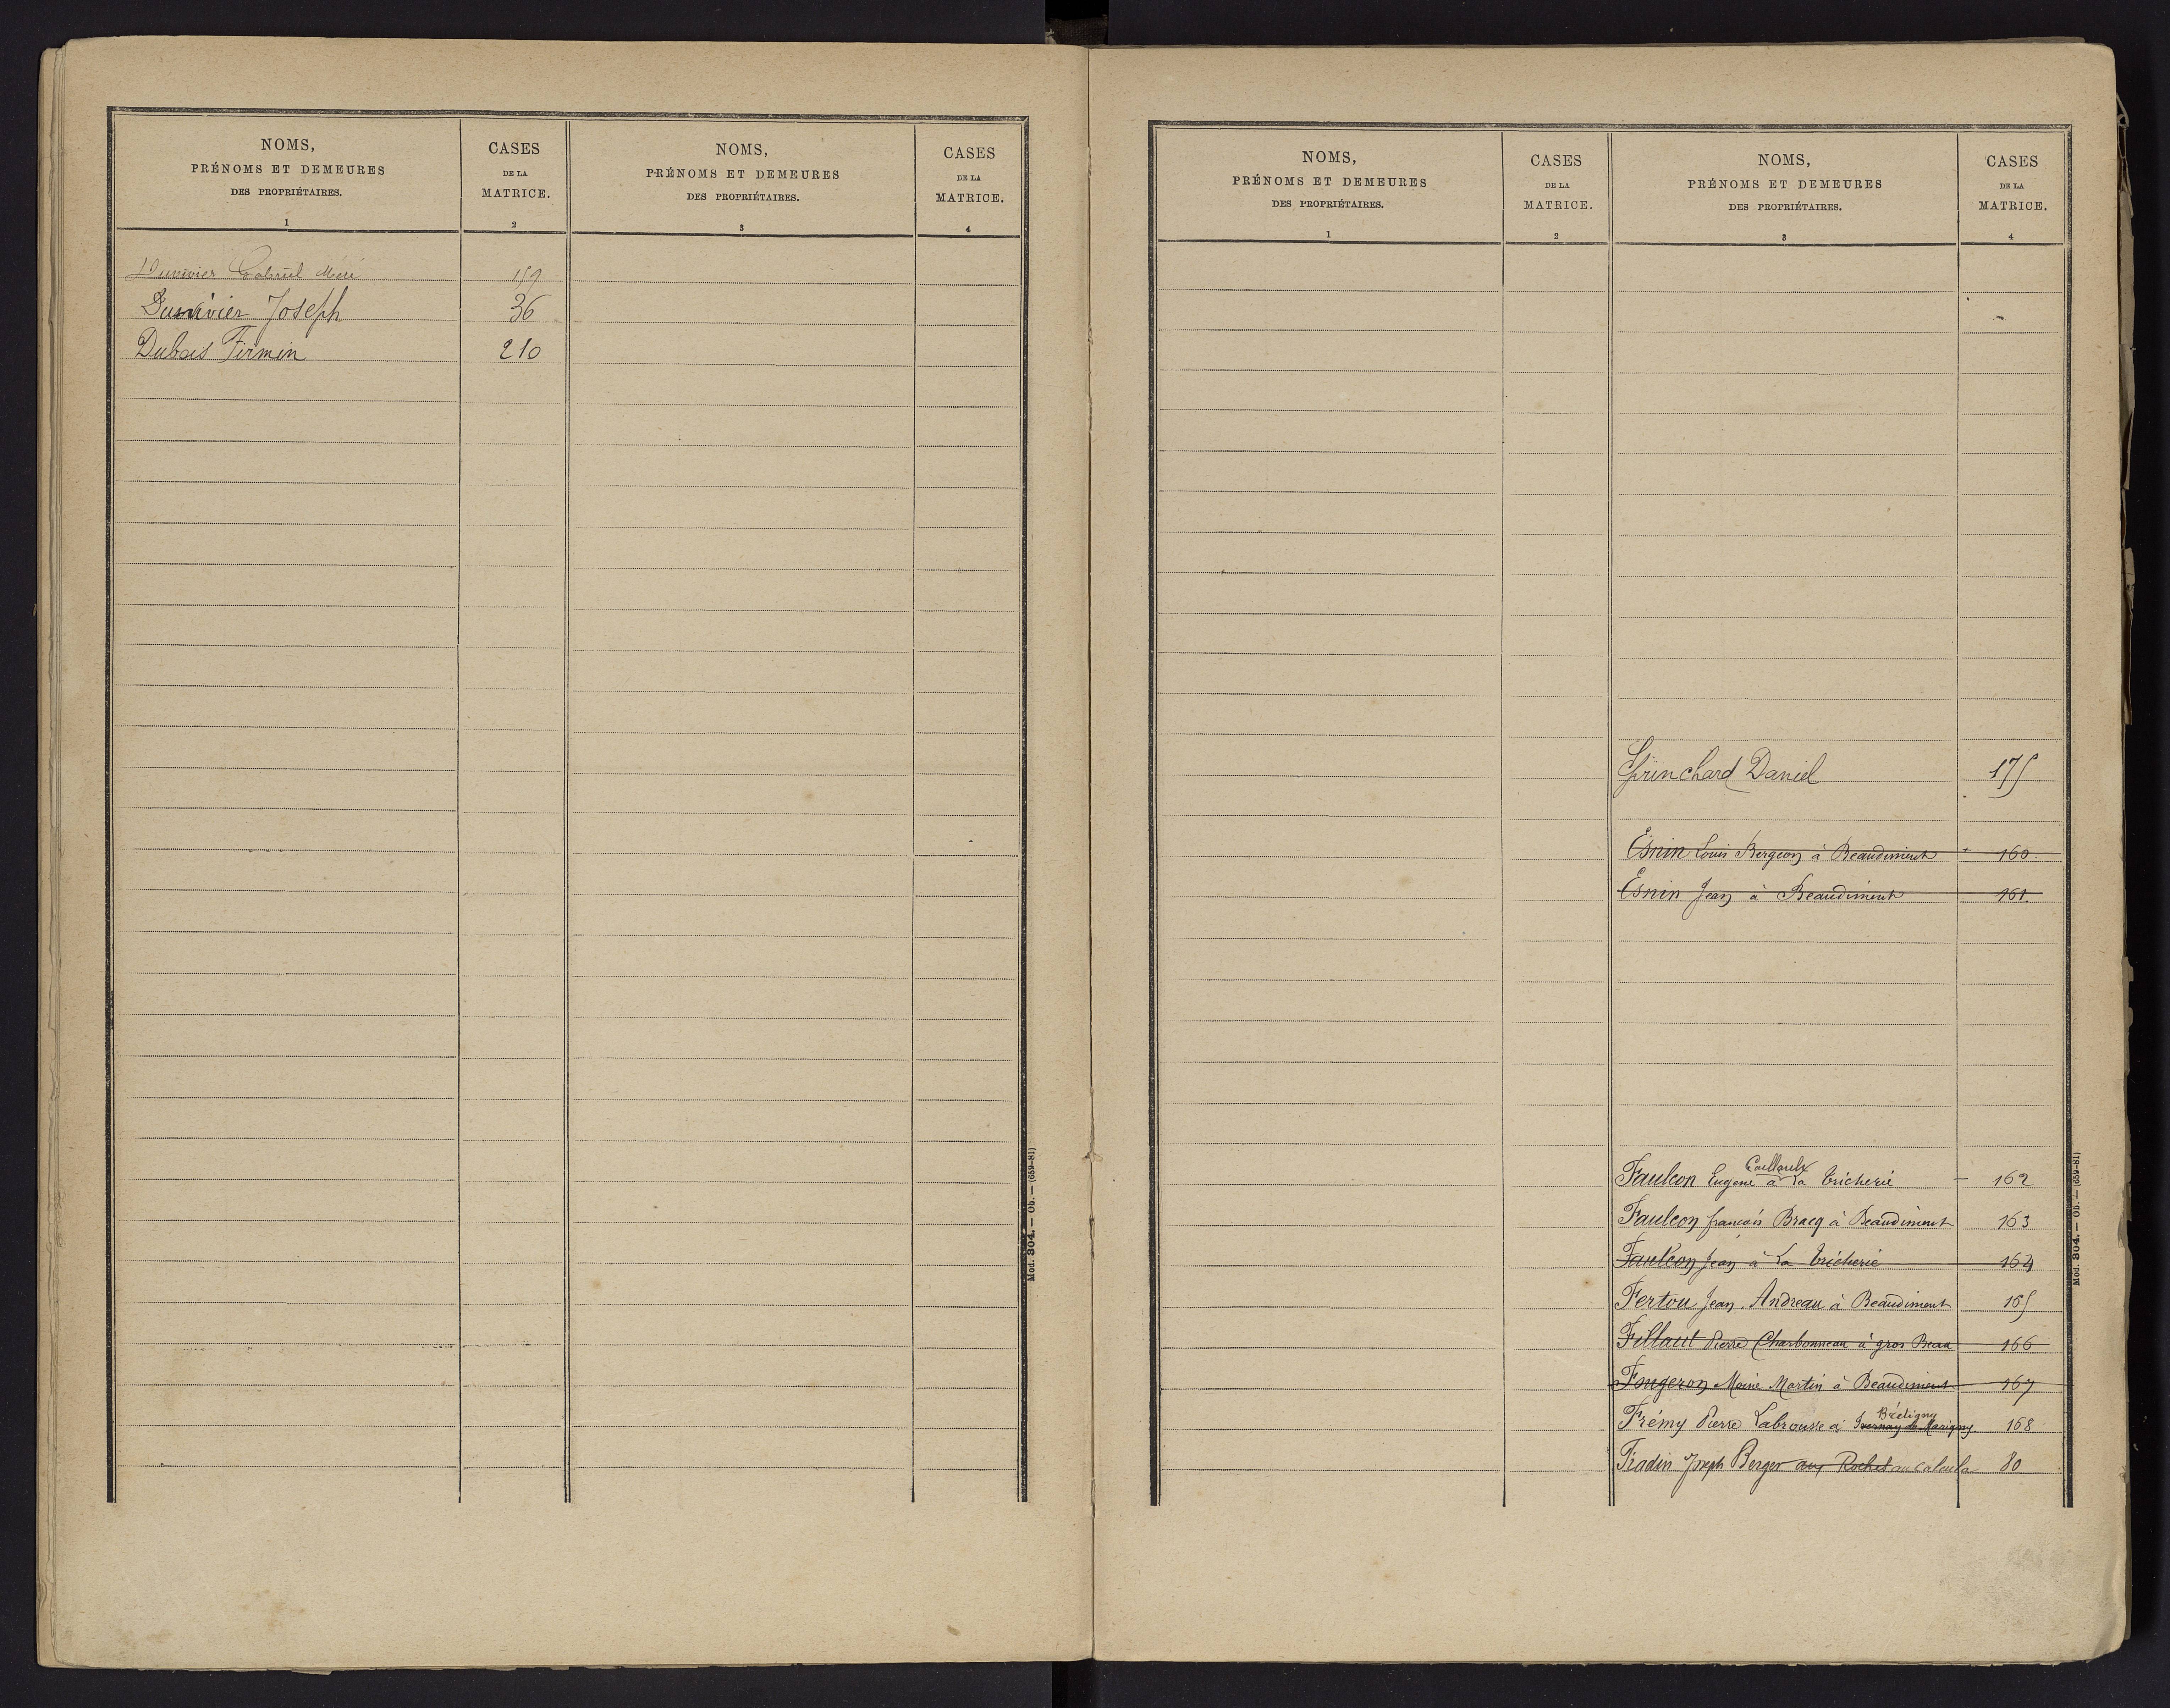 NOMS,
PRÉNOMS ET DEMEURES
DES PROPRIÉTAIRES.
1
CASES
DE LA
MATRICE.
2
NOMS,
PRÉNOMS ET DEMEURES
DES PROPRIÉTAIRES.
3
CASES
DE LA
MATRICE.
4
Duvivier Gabriel 159
Duvivier Joseph 36
Dubois Firmin 210
Mod. 304. — Ob. — (659-81)
NOMS,
PRÉNOMS ET DEMEURES
DES PROPRIÉTAIRES.
1
CASES
DE LA
MATRICE.
2
NOMS,
PRÉNOMS ET DEMEURES
DES PROPRIÉTAIRES.
3
CASES
DE LA
MATRICE.
4
Daniel 175
Esnin Louis Bergeon à Beaudiment + 160.
Esnin Jean à Beaudiment 161.
Faulcon Eugène à La Tricherie – 162
Faulcon françois Bracq à Beaudiment 163
Faulcon Jean à La Tricherie 164
Fertou Jean Andreau à Beaudiment 165
Fillaut Pierre Charbonneau à gros Beau 166
Fougeron Marie Martin à Beaudiment 167
Brétigny
Frémy Pierre Labrousse à de Marigny. 168
Fradin Joseph Berger aux Roches au 80
Mod. 304. — Ob. — (659-81)